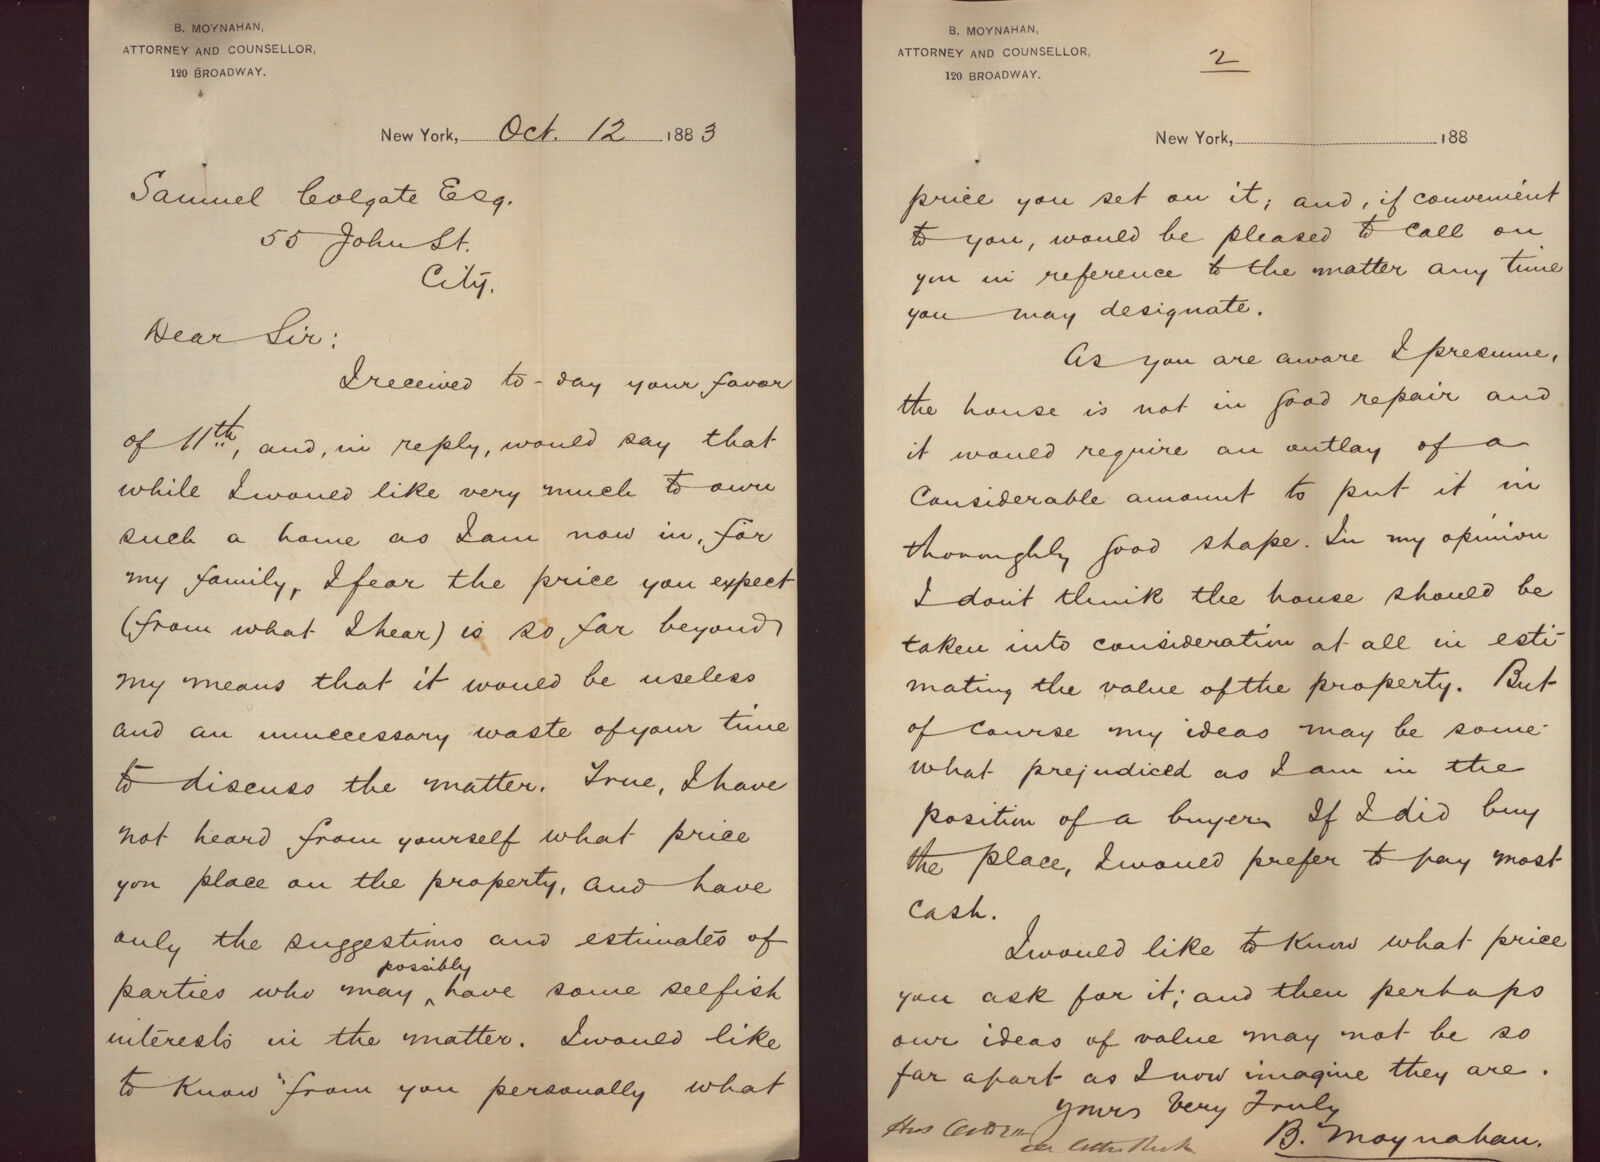 B. MOYNAHAN,
ATTORNEY AND COUNSELLOR,
120 BROADWAY.
New York, Oct. 12 1883
Samuel Colgate Esq.
55 John St.
City.
Dear Sir:
I received to-day your favor
of 11th, and, in reply, would say that
while I would like very much to own
such a home as I am now in, for
my family, I fear the price you expect
(from what I hear) is so far beyond
my means that it would be useless
and an unnecessary waste of your time
to discuss the matter. True, I have
not heard from yourself what price
you place on the property, and have
only the suggestions and estimates of
possibly
parties who may ^ have some selfish
interests in the matter. I would like
to know from you personally what
B. MOYNAHAN,
ATTORNEY AND COUNSELLOR,
120 BROADWAY.
2
New York, 188
price you set on it; and, if convenient
to you, would be pleased to call on
you in reference to the matter any time
you may designate.
As you are aware I presume,
the house is not in good repair and
it would require an outlay of a
considerable amount to put it in
thoroughly good shape. In my opinion
I don't think the house should be
taken into consideration at all in esti-
mating the value of the property. But
of course my ideas may be some-
what prejudiced as I am in the
position of a buyer. If I did buy
the place, I would prefer to pay most
cash.
I would like to know what price
you ask for it; and then perhaps
our ideas of value may not be so
far apart as I now imagine they are.
Yours Very Truly
B. Moynahan.